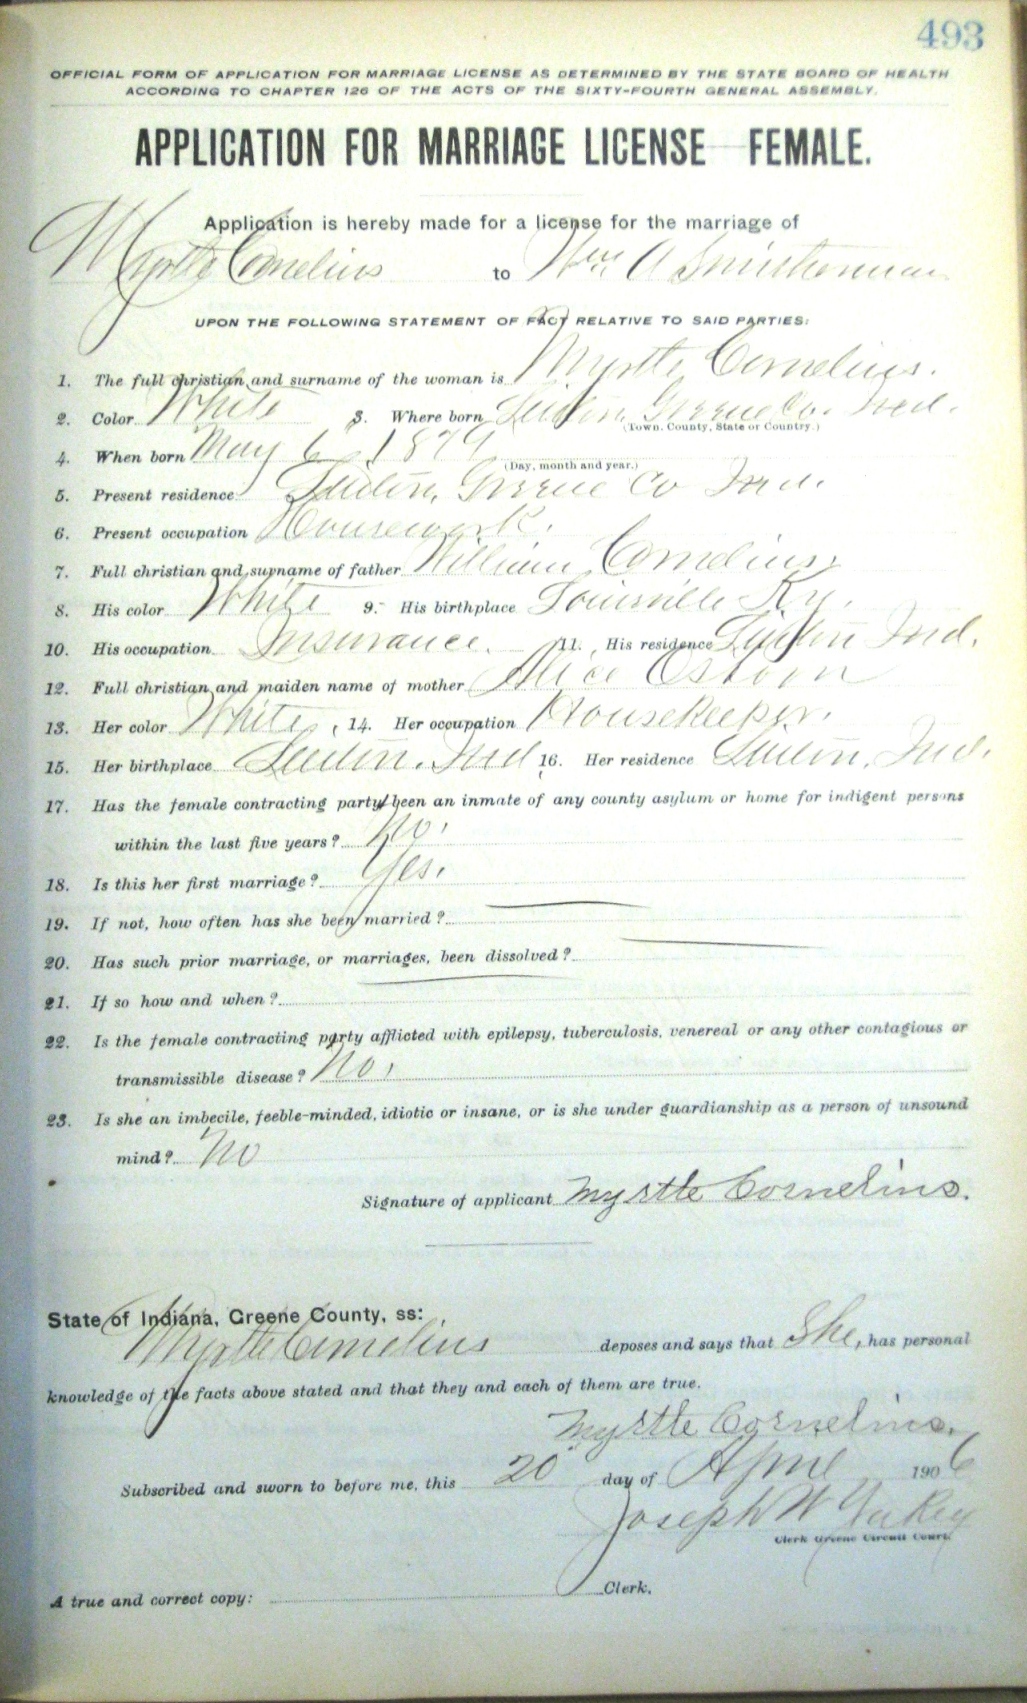 493
OFFICIAL FORM OF APPLICATION FOR MARRIAGE LICENSE AS DETERMINED BY THE STATE BOARD OF HEALTH
ACCORDING TO CHAPTER 126 OF THE ACTS OF THE SIXTY-FOURTH GENERAL ASSEMBLY.
APPLICATION FOR MARRIAGE LICENSE FEMALE.
Application is hereby made for a license for the marriage of
Myrtle Cornelius to Wm A
UPON THE FOLLOWING STATEMENT OF FACT RELATIVE TO SAID PARTIES:
1. The full christian and surname of the woman is Myrtle Cornelius.
2. Color White 3. Where born Linton, Greene Co. Ind.
(Town. County, State or Country.)
4. When born May 6 1879
(Day, month and year.)
5. Present residence Linton, Greene Co Ind.
6. Present occupation Housework.
7. Full christian and surname of father William Cornelius,
8. His color White 9. His birthplace Louisville Ky.
10. His occupation Insurance. 11. His residence Linton Ind.
12. Full christian and maiden name of mother Alice Osborn
13. Her color White, 14. Her occupation Housekeeper.
15. Her birthplace Linton. Ind 16. Her residence Linton, Ind.
17. Has the female contracting party been an inmate of any county asylum or home for indigent persons
within the last five years? No.
18. Is this her first marriage? Yes.
19. If not, how often has she been married?
20. Has such prior marriage, or marriages, been dissolved?
21. If so how and when?
22. Is the female contracting party afflicted with epilepsy, tuberculosis, venereal or any other contagious or
transmissible disease? No.
23. Is she an imbecile, feeble-minded, idiotic or insane, or is she under guardianship as a person of unsound
mind? No
Signature of applicant Myrtle Cornelius.
State of Indiana, Greene County, ss:
Myrtle Cornelius deposes and says that She, has personal
knowledge of the facts above stated and that they and each of them are true.
Myrtle Cornelius.
Subscribed and sworn to before me, this 20 day of April 1906
Joseph W Yakey
Clerk Greene Circuit Court.
A true and correct copy: Clerk.